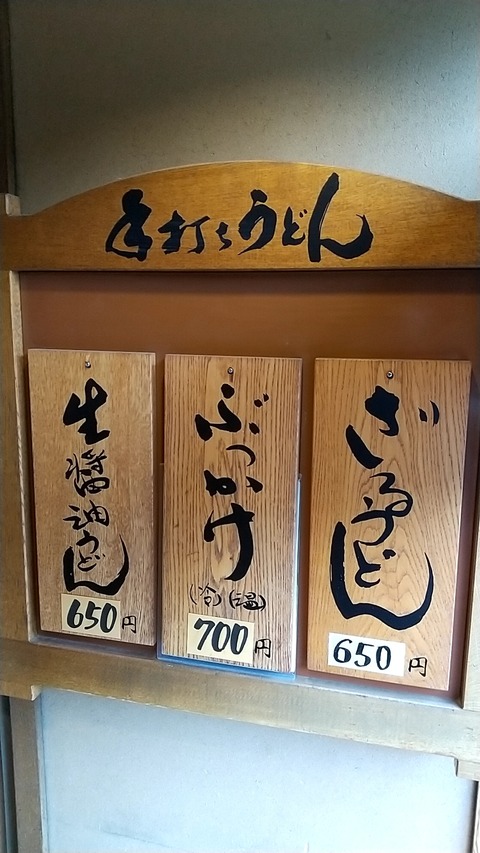 手打ちうどん
ざるうどん
650円
ぶっかけ
(冷)(温)
700円
生醤油うどん
650円